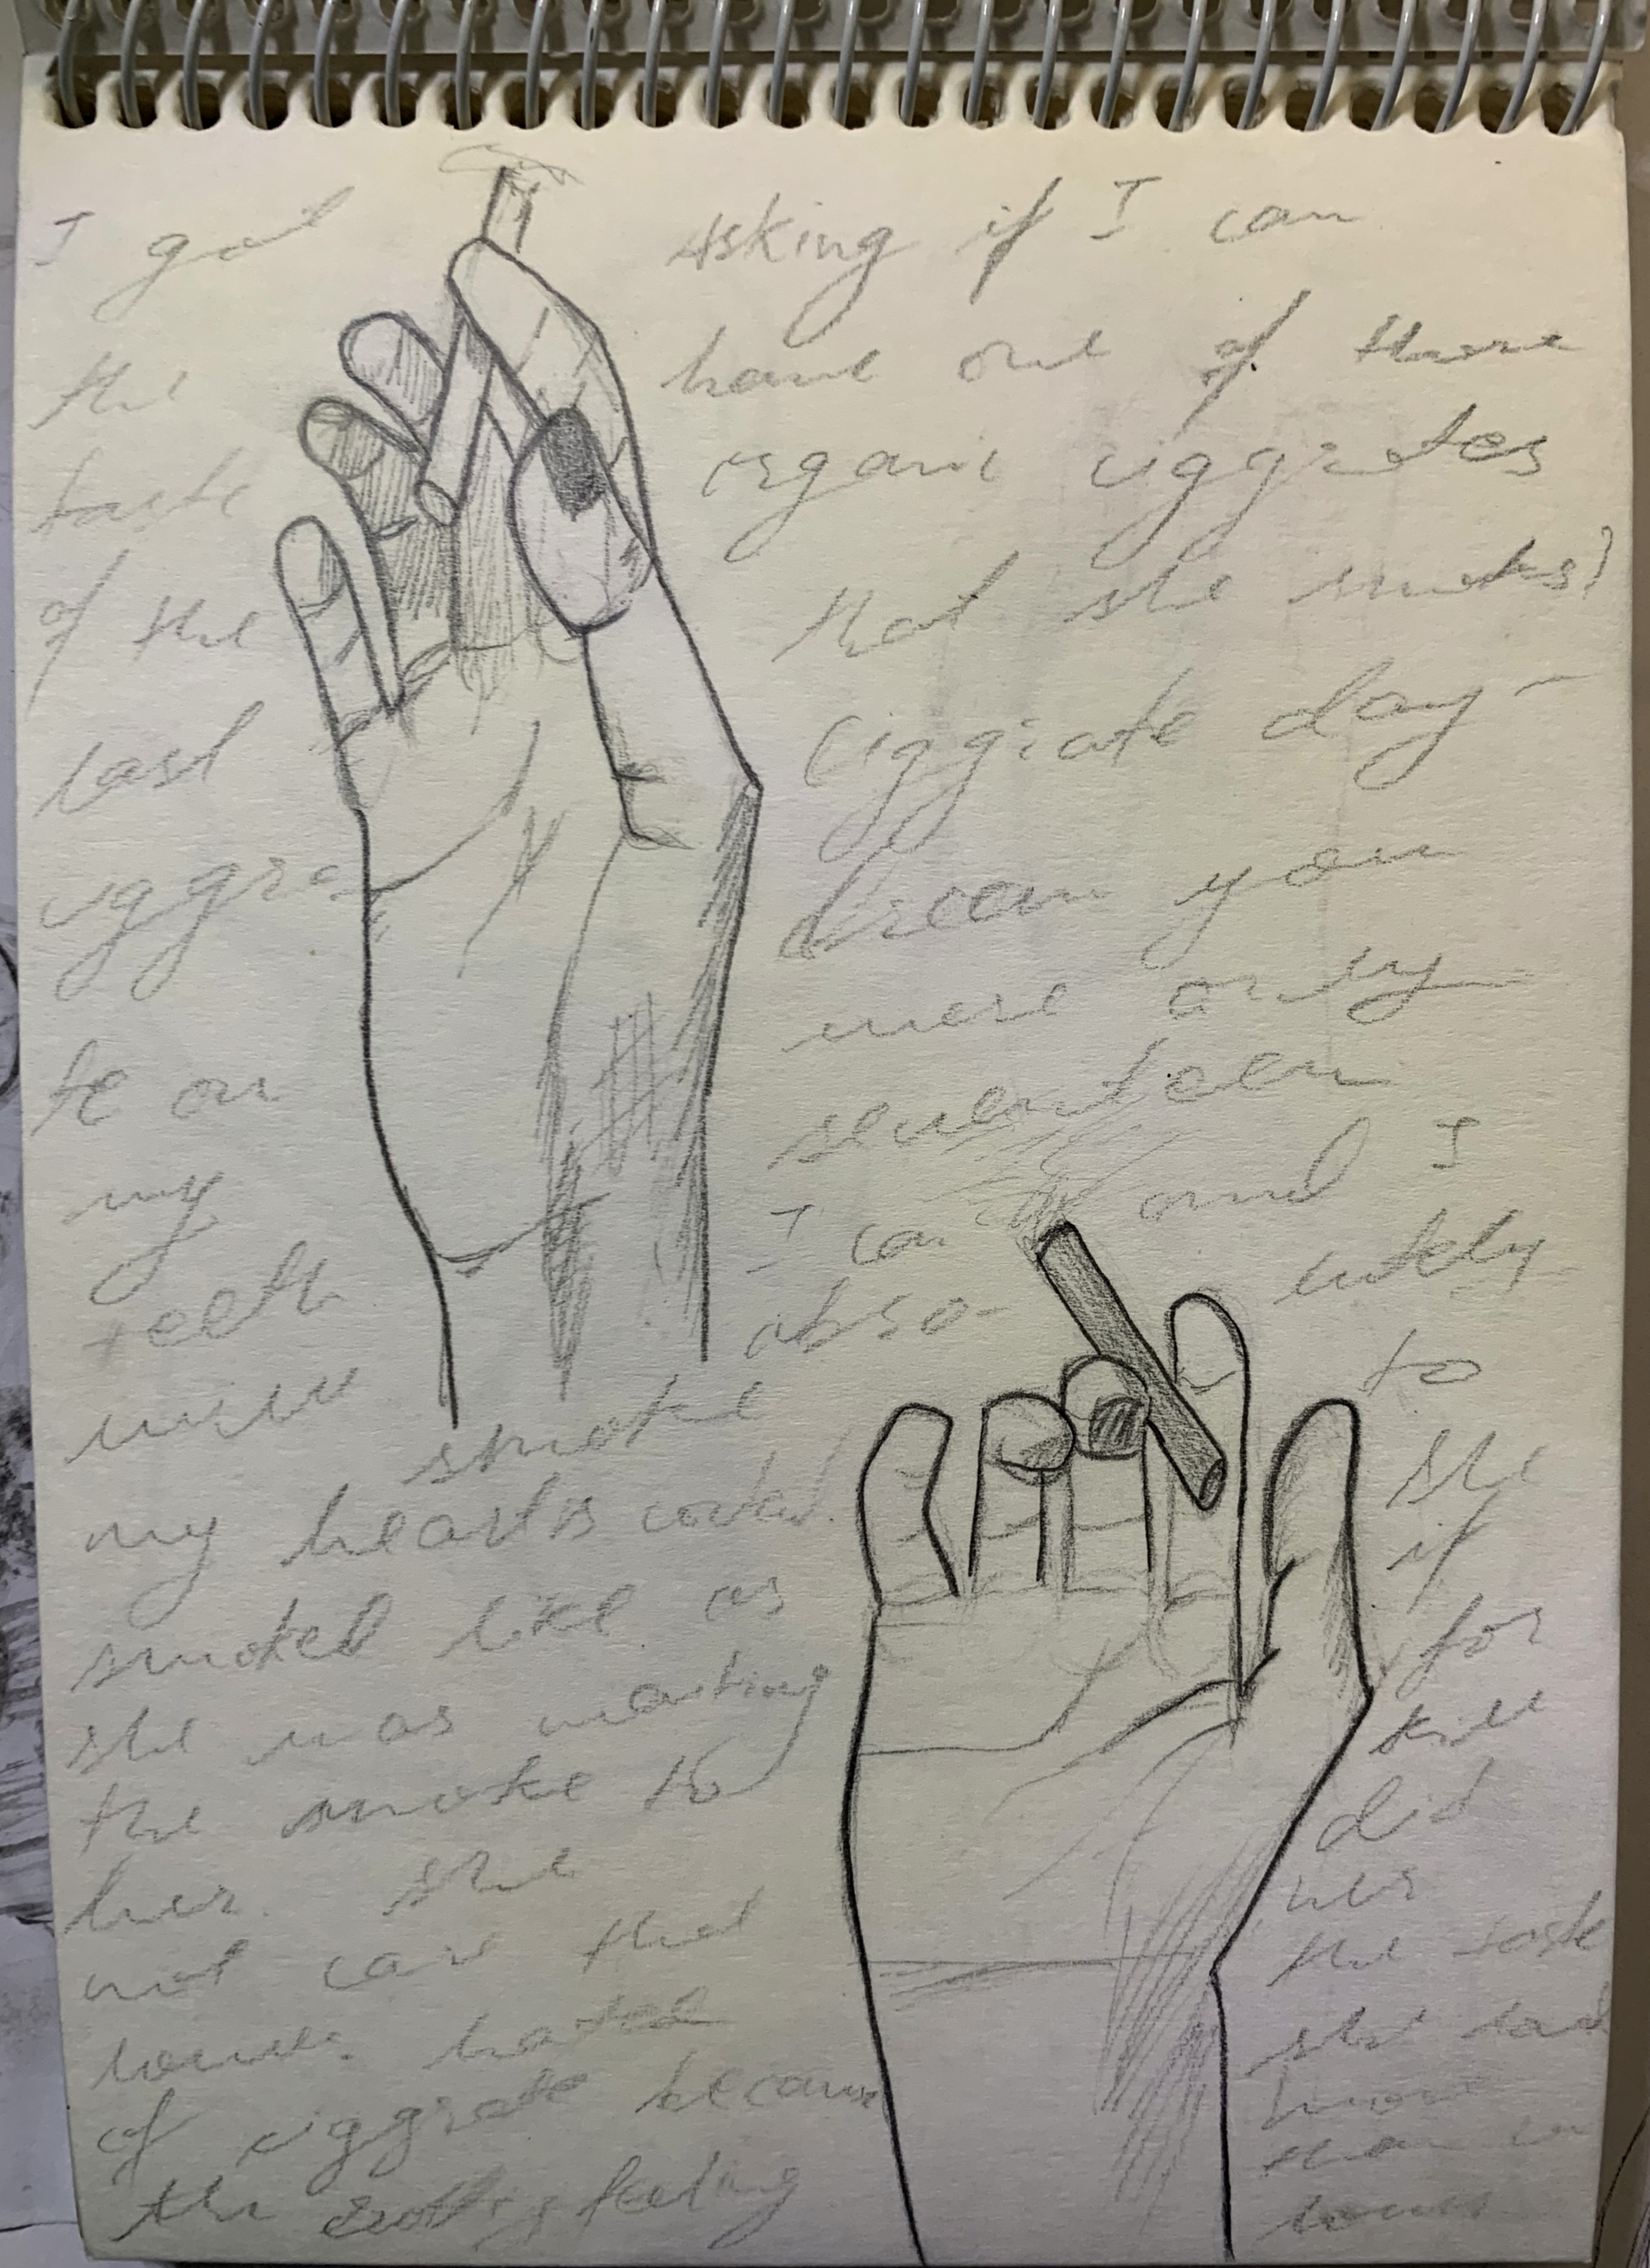 I got
the
taste
of the
last
ciggra
te on
my
teeth
will
smoke
my heart is
smoked like as
she was
the smoke to
her. she
not care that
hated
of ciggrate because
the feeling
Asking if I can
have one of those
organic ciggrates
that she smokes?
Ciggrate day-
dream you
were only
seventeen
I can and I
abso- utely
to
she
if
for
kill
did
her
the taste
she had
more
than